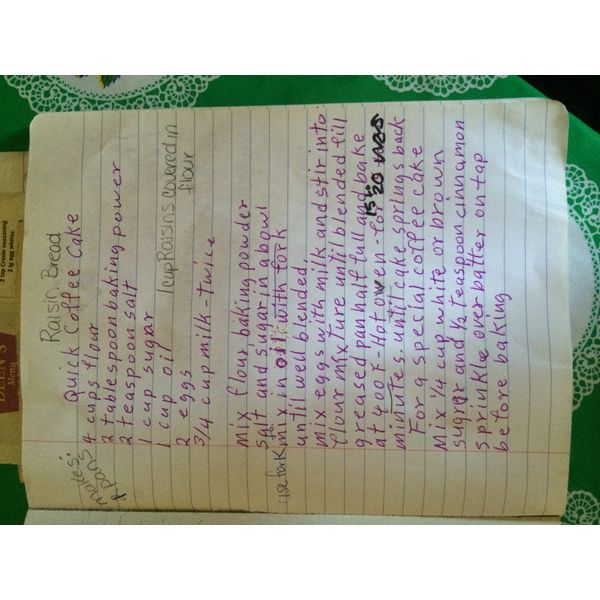 Raisin Bread
Quick Coffee Cake
makes:
4 cups flour
2 tablespoon baking power
2 teaspoon salt
1 cup sugar
1 cup oil
1 cup Raisins covered in
flour
2 eggs
3/4 cup milk - twice
mix flour, baking powder
salt and sugar in a bowl
mix in oil with fork
use fork to
until well blended.
mix eggs with milk and stir into
flour mixture until blended fill
greased pan half full and bake
at 400F - Hot oven - for
15 to 20 mns
minutes, until cake springs back
For a special coffee cake
Mix 1/4 cup white or brown
sugar and 1/2 teaspoon cinnamon
sprinkle over batter on tap
before baking
2 tsp Creole seasoning
2 lg egg whites
Menu